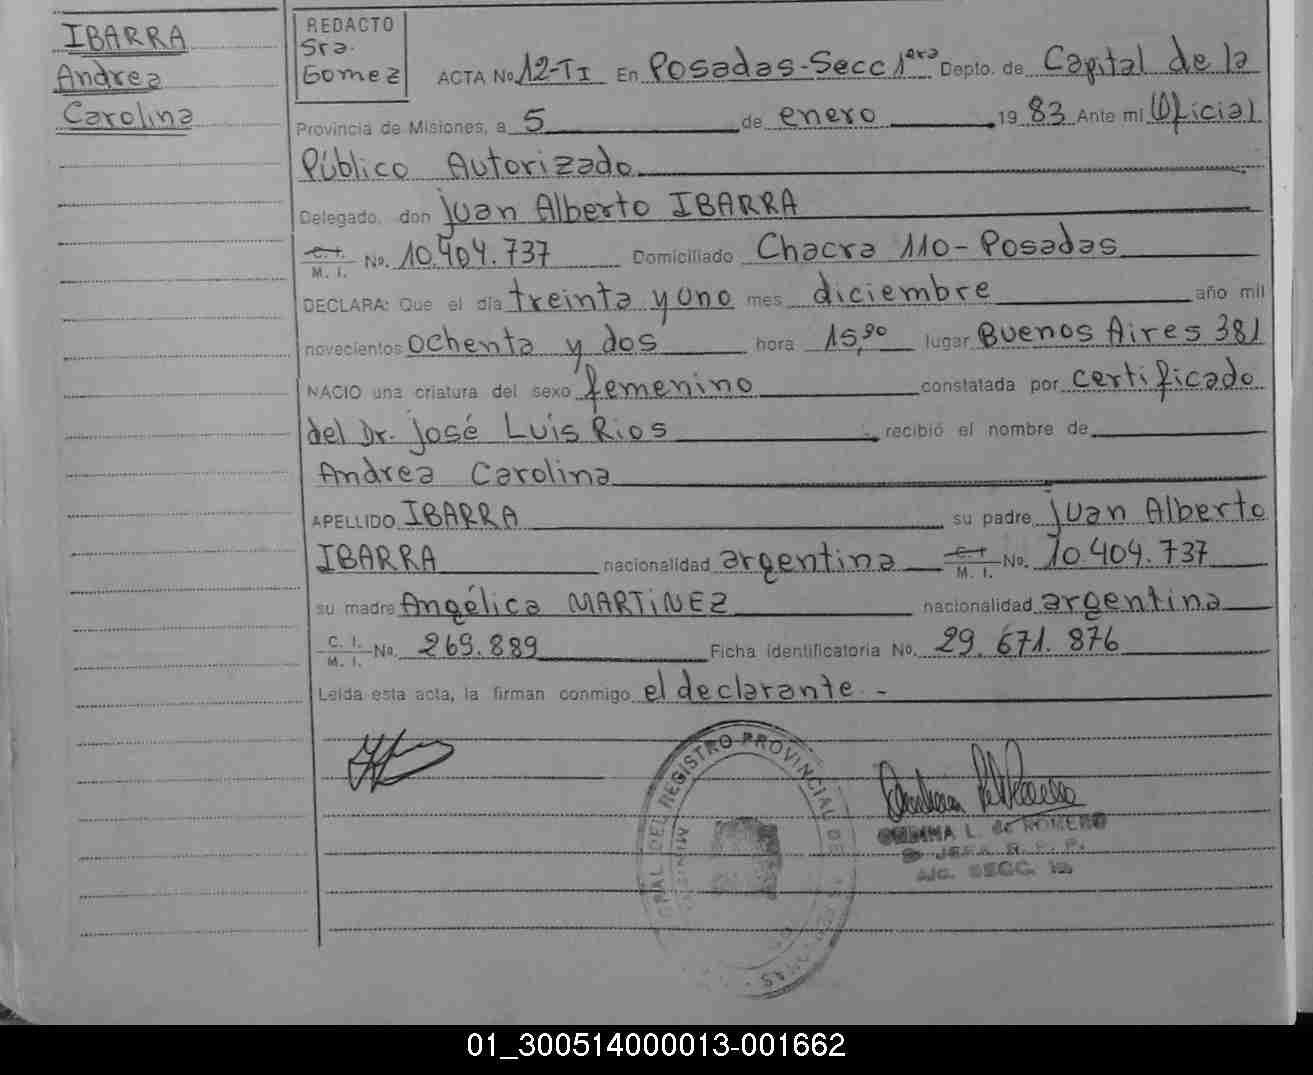 IBARRA
Andrea
Carolina
REDACTO
Sra.
Gomez
ACTA No. 12-TI En Posadas-Secc 1era Depto. de Capital de la
Provincia de Misiones, a 5 de enero 19 83 Ante mi Oficial
Público Autorizado.
Delegado, don Juan Alberto IBARRA
C. I.
M. I. No. 10.404.737 Domiciliado Chacra 110-Posadas
DECLARA: Que el día treinta y uno mes diciembre año mil
novecientos ochenta y dos hora 15,30 lugar Buenos Aires 381
NACIO una criatura del sexo femenino constatada por certificado
del Dr. José Luis Rios recibió el nombre de
Andrea Carolina
APELLIDO IBARRA su padre Juan Alberto
IBARRA nacionalidad argentina C. I. M. I. No. 10.404.737
su madre Angélica MARTINEZ nacionalidad argentina
C. I.
M. I. No. 269.889 Ficha Identificatoria No. 29.671.876
Leída esta acta, la firman conmigo el declarante.-
DEL REGISTRO PROVINCIAL DE
L. de ROMERO
JEFA R. P. P.
SECC. 1a
01_300514000013-001662